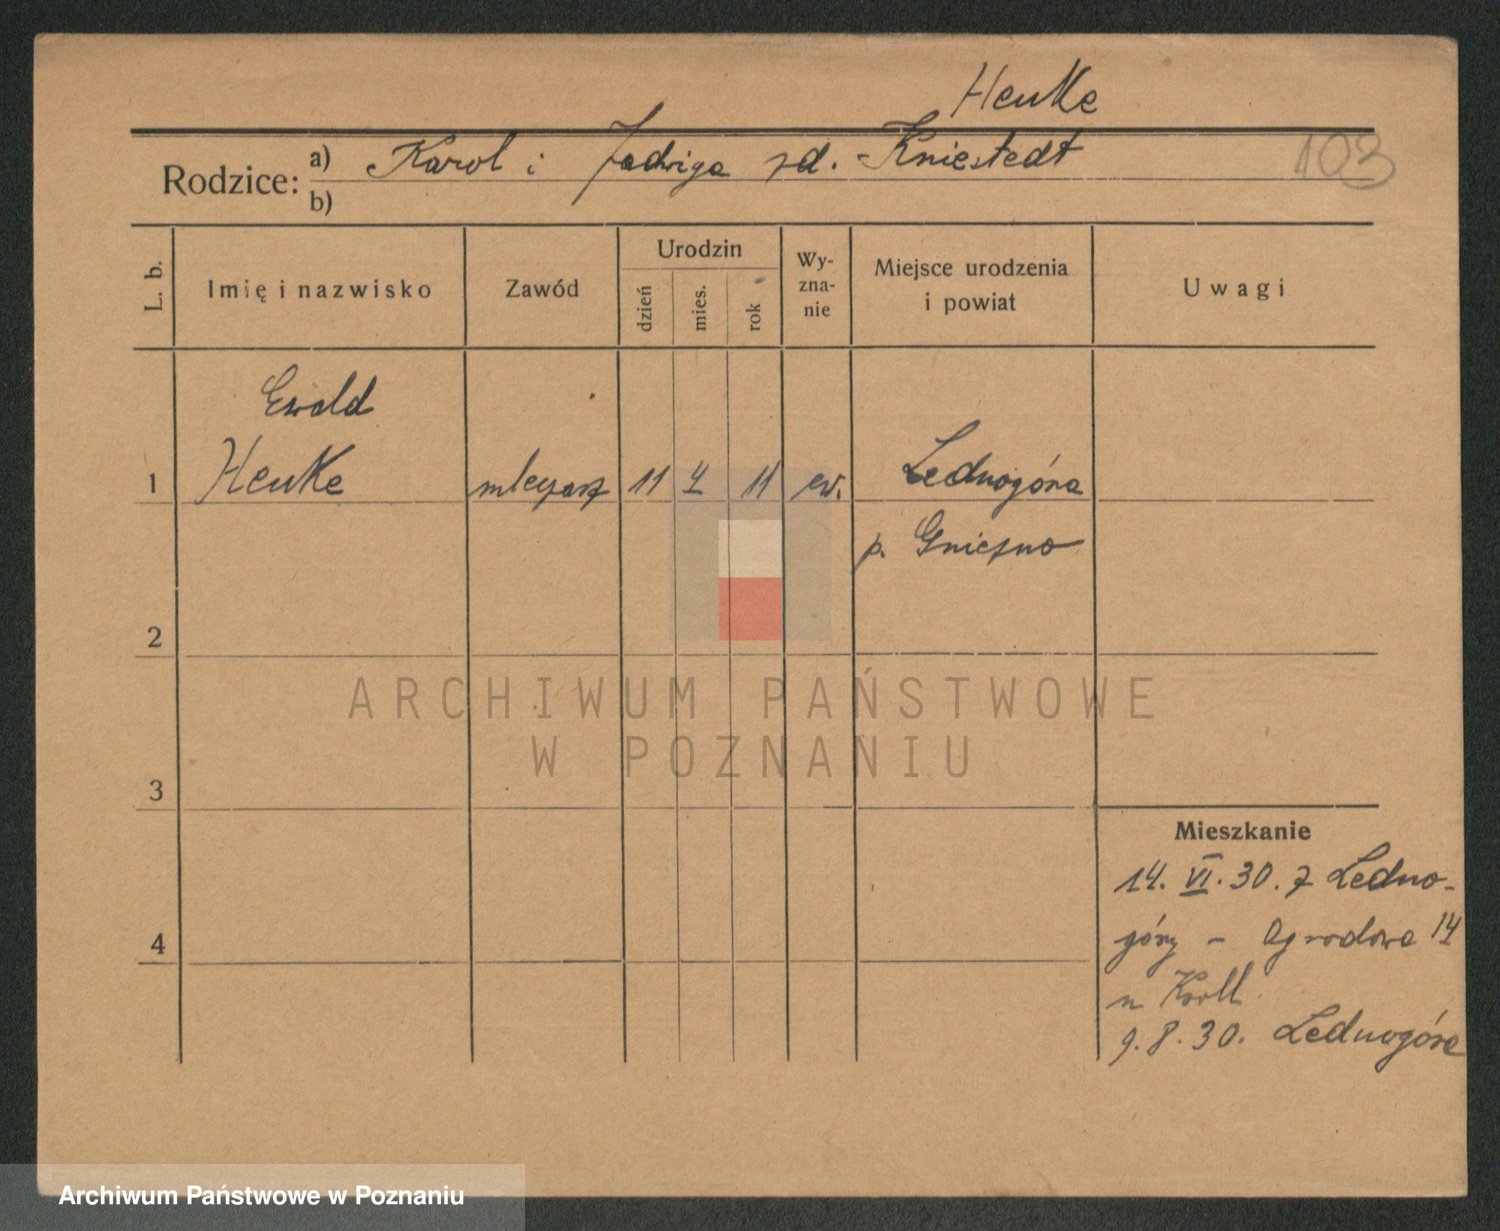 Henke
Rodzice: a) Karol i Jadwiga zd. Kniestedt
103
b)
L. b.
Imię i nazwisko
Zawód
Urodzin
dzień
mies.
rok
Wy-
zna-
nie
Miejsce urodzenia
i powiat
Uwagi
Ewald
1 Henke mleczarz 11 4 11 ew. Lednogóra
p. Gniezno
2
3
4
Mieszkanie
14. VI. 30. z Ledno-
góry - Ogrodowa 14
u Kroll
9. 8. 30. Lednogóra
ARCHIWUM PAŃSTWOWE
W POZNANIU
Archiwum Państwowe w Poznaniu